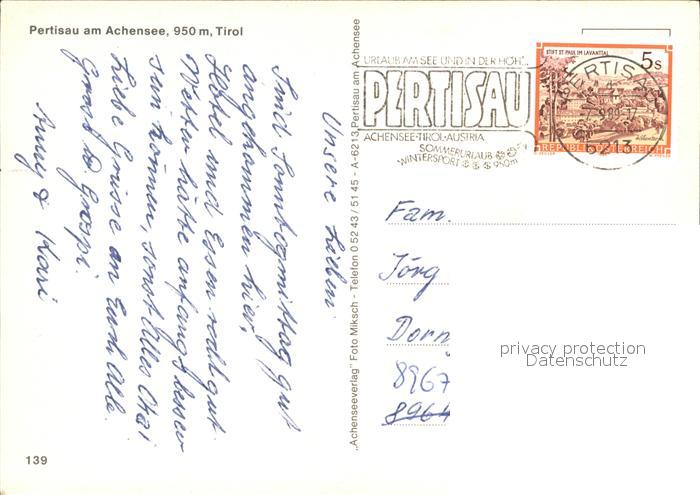 Pertisau am Achensee, 950 m, Tirol
Unsere Lieben
Sind Sonntagmittag gut
angekommen hier,
Hotel und Essen recht gut
Wetter hätte anfangs besser
sein können, sonst Alles Okai
Liebe Grüsse an Euch Alle
Grosi & Grospi.
Anny & Kari
139
„Achenseeverlag" Foto Miksch - Telefon 0 52 43 / 51 45 - A-6213 Pertisau am Achensee
URLAUB AM SEE UND IN DER HÖH'...
PERTISAU
ACHENSEE-TIROL-AUSTRIA
SOMMERURLAUB
WINTERSPORT 950m
STIFT ST. PAUL IM LAVANTTAL
5 S
REPUBLIK ÖSTERREICH
PERTISAU
6213
Fam.
Jörg
Dorn
8967
8964
privacy protection
Datenschutz